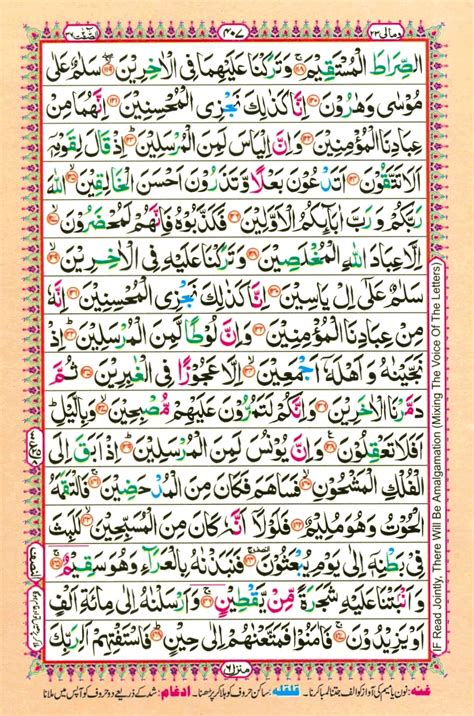 وَمَالِیَ ٢٣
٤٠٧
الصّٰٓفّٰت ٣٧
الصِّرَاطَ الْمُسْتَقِيْمَ ﴿١١٨﴾ وَتَرَكْنَا عَلَيْهِمَا فِى الْاٰخِرِيْنَ ﴿١١٩﴾ سَلٰمٌ عَلٰى
مُوْسٰى وَهٰرُوْنَ ﴿١٢٠﴾ اِنَّا كَذٰلِكَ نَجْزِى الْمُحْسِنِيْنَ ﴿١٢١﴾ اِنَّهُمَا مِنْ
عِبَادِنَا الْمُؤْمِنِيْنَ ﴿١٢٢﴾ وَاِنَّ اِلْيَاسَ لَمِنَ الْمُرْسَلِيْنَ ﴿١٢٣﴾ اِذْ قَالَ لِقَوْمِهٖۤ
اَلَا تَتَّقُوْنَ ﴿١٢٤﴾ اَتَدْعُوْنَ بَعْلًا وَّتَذَرُوْنَ اَحْسَنَ الْخَالِقِيْنَ ﴿١٢٥﴾ اللّٰهَ
رَبَّكُمْ وَرَبَّ اٰبَآئِكُمُ الْاَوَّلِيْنَ ﴿١٢٦﴾ فَكَذَّبُوْهُ فَاِنَّهُمْ لَمُحْضَرُوْنَ ﴿١٢٧﴾
اِلَّا عِبَادَ اللّٰهِ الْمُخْلَصِيْنَ ﴿١٢٨﴾ وَتَرَكْنَا عَلَيْهِ فِى الْاٰخِرِيْنَ ﴿١٢٩﴾
سَلٰمٌ عَلٰٓى اِلْ يَاسِيْنَ ﴿١٣٠﴾ اِنَّا كَذٰلِكَ نَجْزِى الْمُحْسِنِيْنَ ﴿١٣١﴾ اِنَّهٗ
مِنْ عِبَادِنَا الْمُؤْمِنِيْنَ ﴿١٣٢﴾ وَاِنَّ لُوْطًا لَّمِنَ الْمُرْسَلِيْنَ ﴿١٣٣﴾ اِذْ
نَجَّيْنٰهُ وَاَهْلَهٗۤ اَجْمَعِيْنَ ﴿١٣٤﴾ اِلَّا عَجُوْزًا فِى الْغٰبِرِيْنَ ﴿١٣٥﴾ ثُمَّ
دَمَّرْنَا الْاٰخَرِيْنَ ﴿١٣٦﴾ وَاِنَّكُمْ لَتَمُرُّوْنَ عَلَيْهِمْ مُّصْبِحِيْنَ ﴿١٣٧﴾ وَبِالَّيْلِ
اَفَلَا تَعْقِلُوْنَ ﴿١٣٨﴾ وَاِنَّ يُوْنُسَ لَمِنَ الْمُرْسَلِيْنَ ﴿١٣٩﴾ اِذْ اَبَقَ اِلَى
الْفُلْكِ الْمَشْحُوْنِ ﴿١٤٠﴾ فَسَاهَمَ فَكَانَ مِنَ الْمُدْحَضِيْنَ ﴿١٤١﴾ فَالْتَقَمَهُ
الْحُوْتُ وَهُوَ مُلِيْمٌ ﴿١٤٢﴾ فَلَوْلَاۤ اَنَّهٗ كَانَ مِنَ الْمُسَبِّحِيْنَ ﴿١٤٣﴾ لَلَبِثَ
فِىْ بَطْنِهٖۤ اِلٰى يَوْمِ يُبْعَثُوْنَ ﴿١٤٤﴾ فَنَبَذْنٰهُ بِالْعَرَآءِ وَهُوَ سَقِيْمٌ ﴿١٤٥﴾
وَاَنْۢبَتْنَا عَلَيْهِ شَجَرَةً مِّنْ يَّقْطِيْنٍ ﴿١٤٦﴾ وَاَرْسَلْنٰهُ اِلٰى مِائَةِ اَلْفٍ
اَوْ يَزِيْدُوْنَ ﴿١٤٧﴾ فَاٰمَنُوْا فَمَتَّعْنٰهُمْ اِلٰى حِيْنٍ ﴿١٤٨﴾ فَاسْتَفْتِهِمْ اَلِرَبِّكَ
منزل ٦
غنه: نون یا میم کی آواز کو الف جتنا لمبا کرنا۔ قلقله: ساکن حروف کو ہلا کر پڑھنا۔ ادغام: شد کے ذریعے دو حروف کو آپس میں ملانا
(IF Read Jointly, There Will Be Amalgamation (Mixing The Voice Of The Letters)
النصف